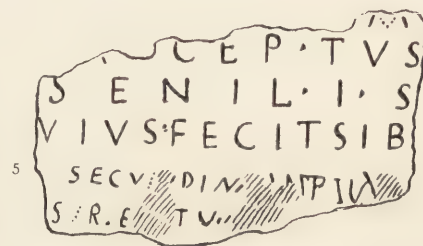 CEP·TVS
SENIL·I·S
VIVS·FECITSIB
5 SECV DIN
S R·E TV